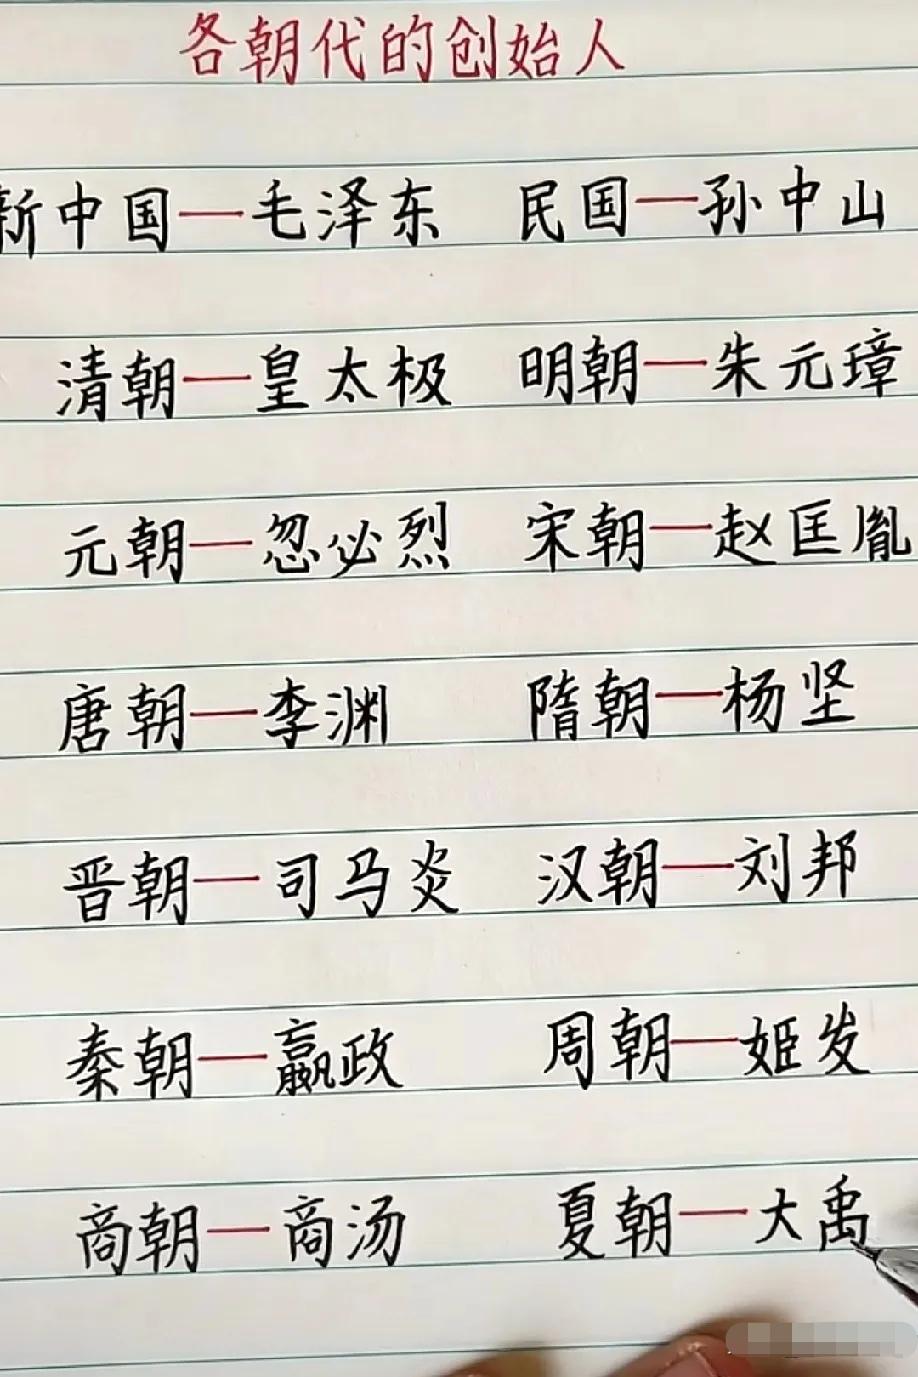 各朝代的创始人
新中国—毛泽东 民国—孙中山
清朝—皇太极 明朝—朱元璋
元朝—忽必烈 宋朝—赵匡胤
唐朝—李渊 隋朝—杨坚
晋朝—司马炎 汉朝—刘邦
秦朝—嬴政 周朝—姬发
商朝—商汤 夏朝—大禹